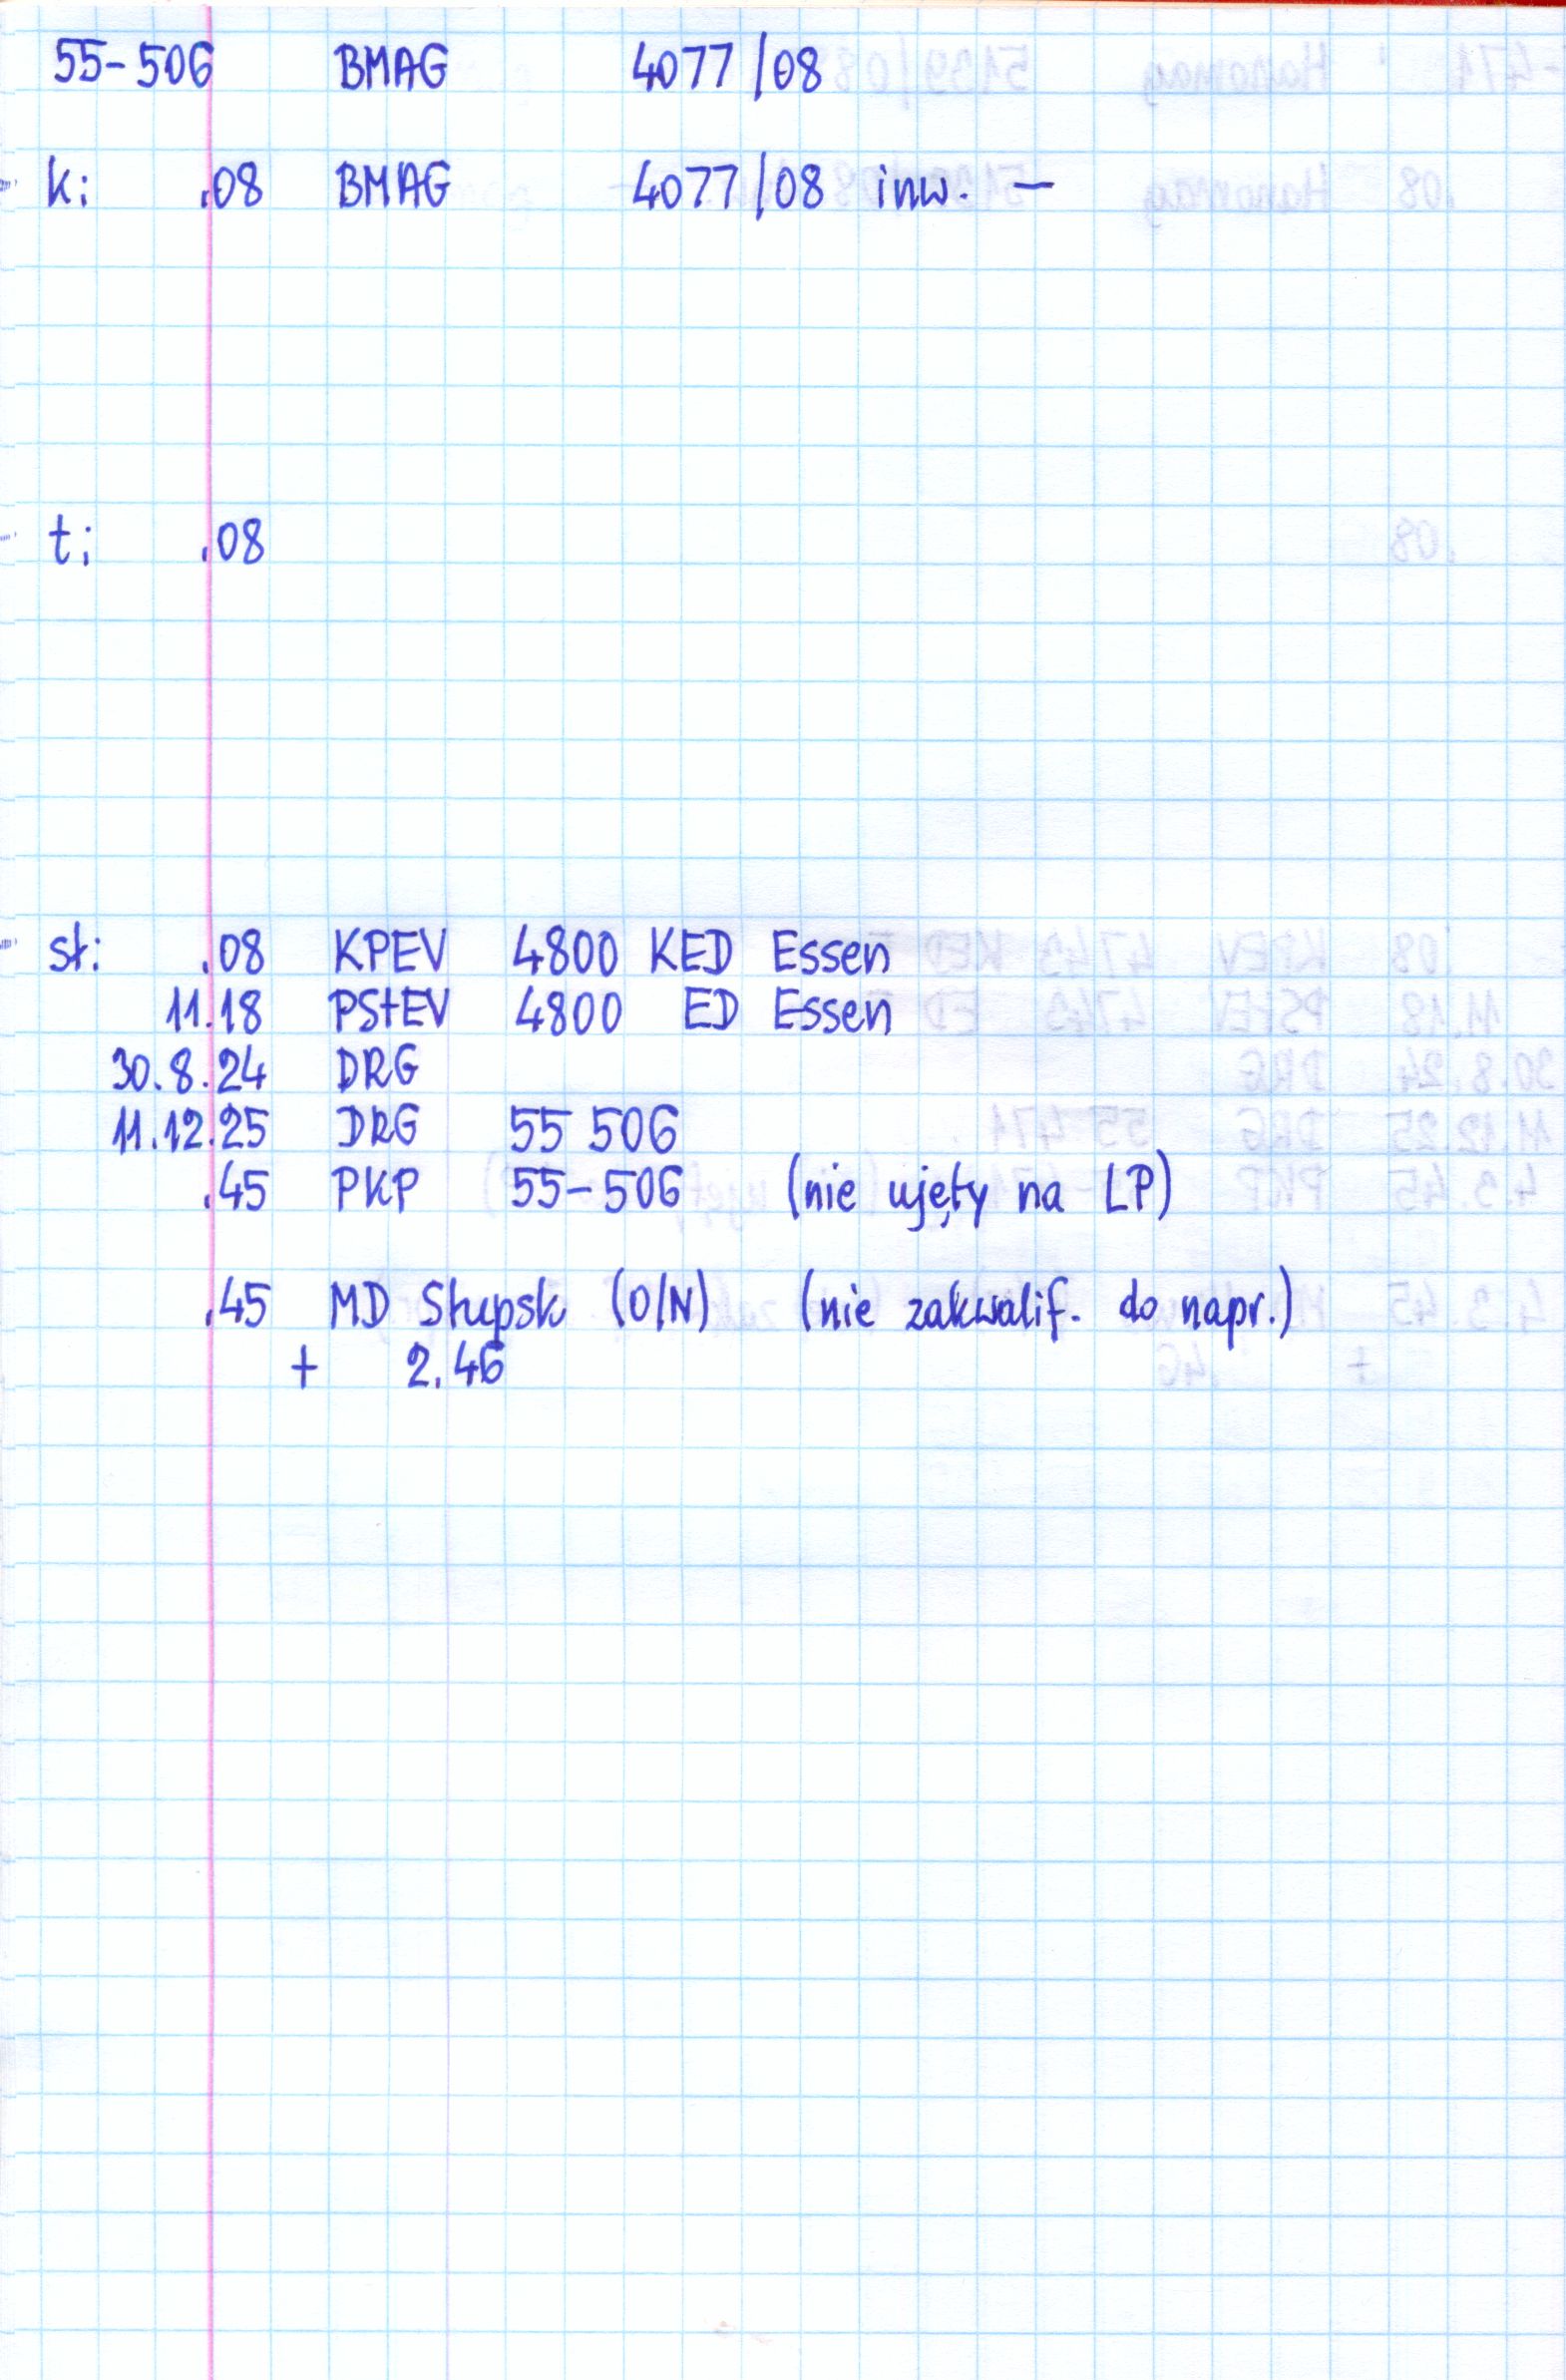 55-506 BMAG 4077/08
k: .08 BMAG 4077/08 inw. —
t: .08
st: .08 KPEV 4800 KED Essen
11.18 PStEV 4800 ED Essen
30.8.24 DRG
11.12.25 DRG 55 506
.45 PKP 55-506 (nie ujęty na LP)
.45 MD Słupsk (O/N) (nie zakwalif. do napr.)
+ 2.46